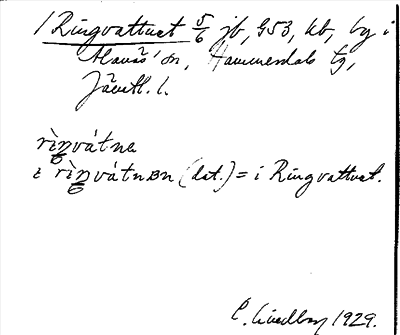 1 Ringvattnet 5/6 jb, GS3, kb, by i
Alanäs' sn, Hammerdals tg,
Jämtl. l.
rìŋvátnɐ
i rìŋvátnʙn (dat.) = i Ringvattnet.
C. Lindberg 1929.